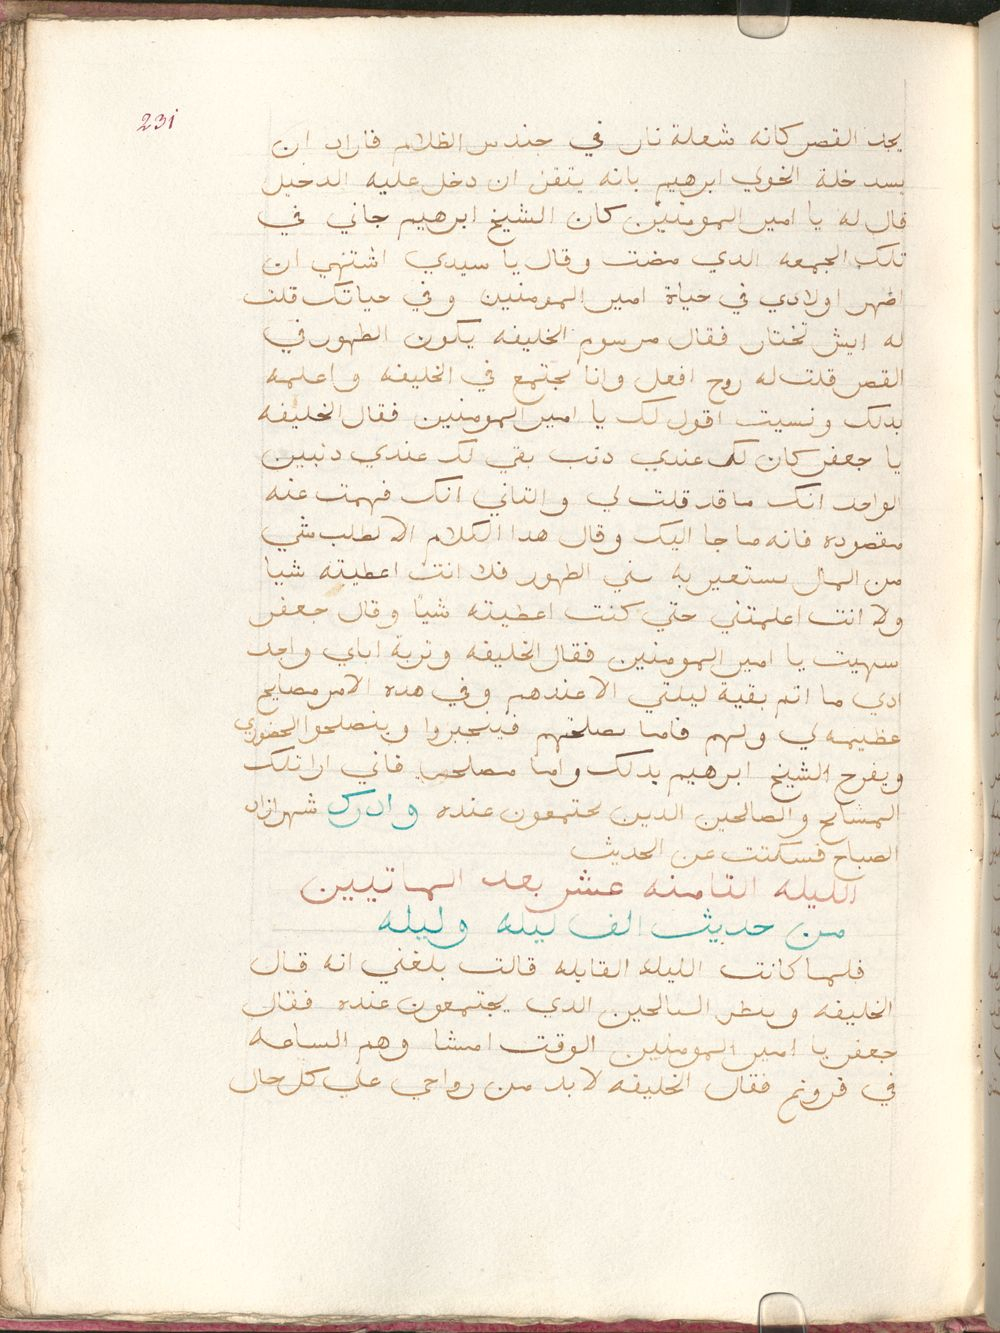 231
يجد القصر كانه شعلة نار في جندس الظلام فاراد ان
يسد خلة الخولي ابرهيم بانه يتقن ان دخل عليه الدخيل
قال له يا امير المومنين كان الشيخ ابرهيم جاني في
تلك الجمعه الدي مضت وقال يا سيدي اشتهي ان
اطهر اولادي في حياة امير المومنين وفي حياتك قلت
له ايش تختار فقال مرسوم الخليفه يكون الطهور في
القصر قلت له روح افعل وانا يجتمع في الخليفه واعلمه
بدلك ونسيت اقول لك يا امير المومنين فقال الخليفه
يا جعفر كان لك عندي دنب بقي لك عندي دنبين
الواحد انك ما قد قلت لي والتاني انك فهمت عنه
مقصوده فانه ما جا اليك وقال هدا الكلام الا لطلب شي
من المال يستعير به في الطهور فلا انت اعطيته شيا
ولا انت اعلمتني حتي كنت اعطيته شيا وقال جعفر
سهيت يا امير المومنين فقال الخليفه وتربة اباي واجد
ادي ما اتم بقية ليلتي الا عندهم وفي هده الامر مصايح
عظيمه لي ولهم فاما مصلحتهم فينجبروا وينصلحوا الحضوري
ويفرح الشيخ ابرهيم بدلك واما مصلحي فاني ارا تلك
المشايح والصالحين الدين يجتمعون عنده وادرك شهرازاد
الصباح فسكتت عن الحديث
الليله التامنه عشر بعد الماتيين
من حديث الف ليله وليله
فلما كانت الليله القابله قالت بلغني انه قال
الخليفه وينظر السالحين الدي يجتمعون عنده فقال
جعفر يا امير المومنين الوقت امشا وهم الساعه
في فروغهم فقال الخليفه لا بد من رواحي علي كل حال